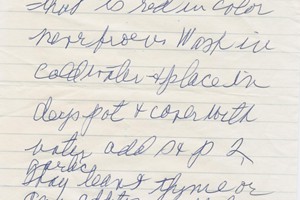 that is red in color
nearprocus Wash in
cold water & place in
deys pot & cover with
water add s & p 2
garlic
bay leave & thyme or